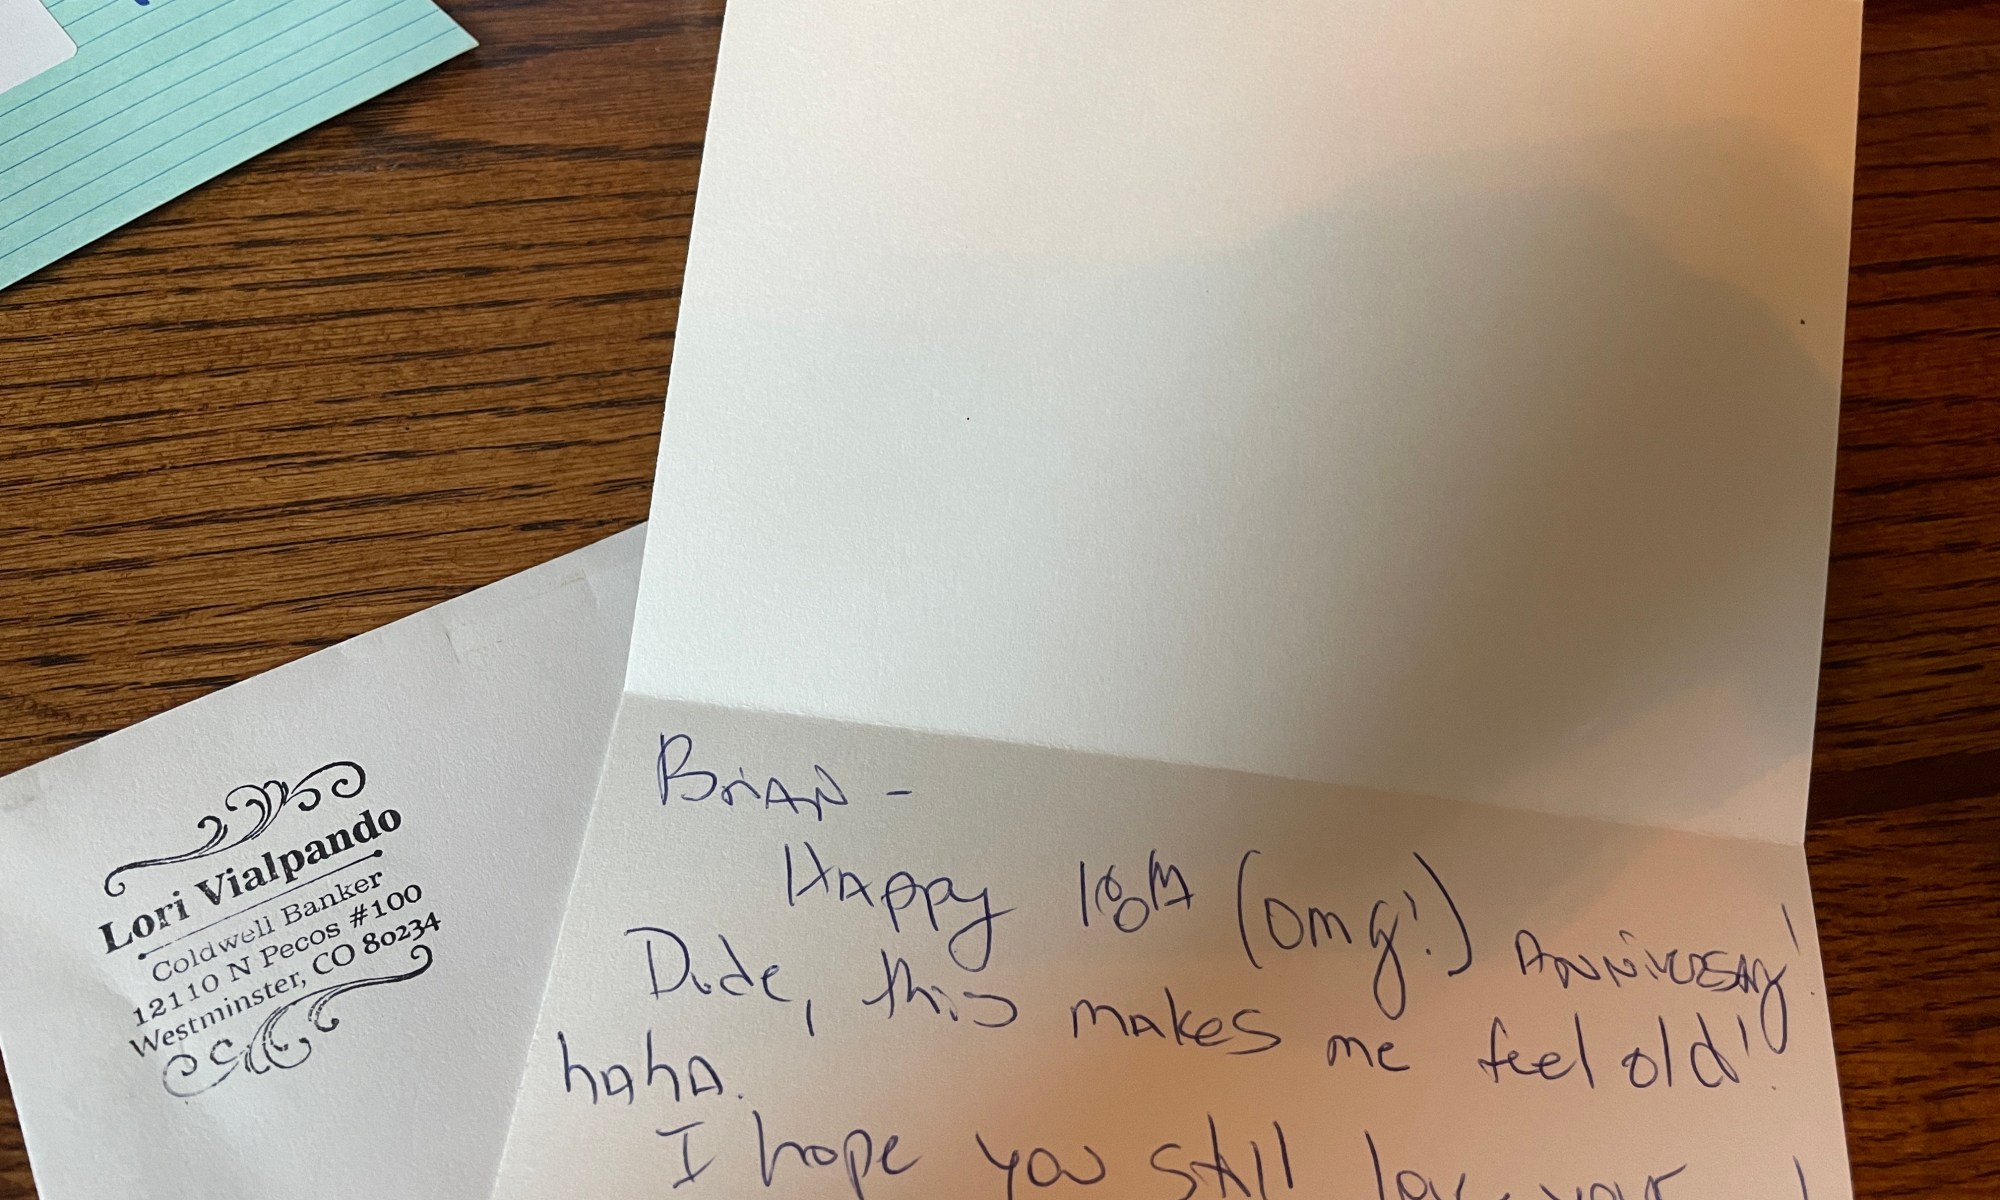 Lori Vialpando
Coldwell Banker
12110 N Pecos #100
Westminster, CO 80234
Brian -
Happy 18th (omg!) Anniversary!
Dude, this makes me feel old!
haha.
I hope you still love your